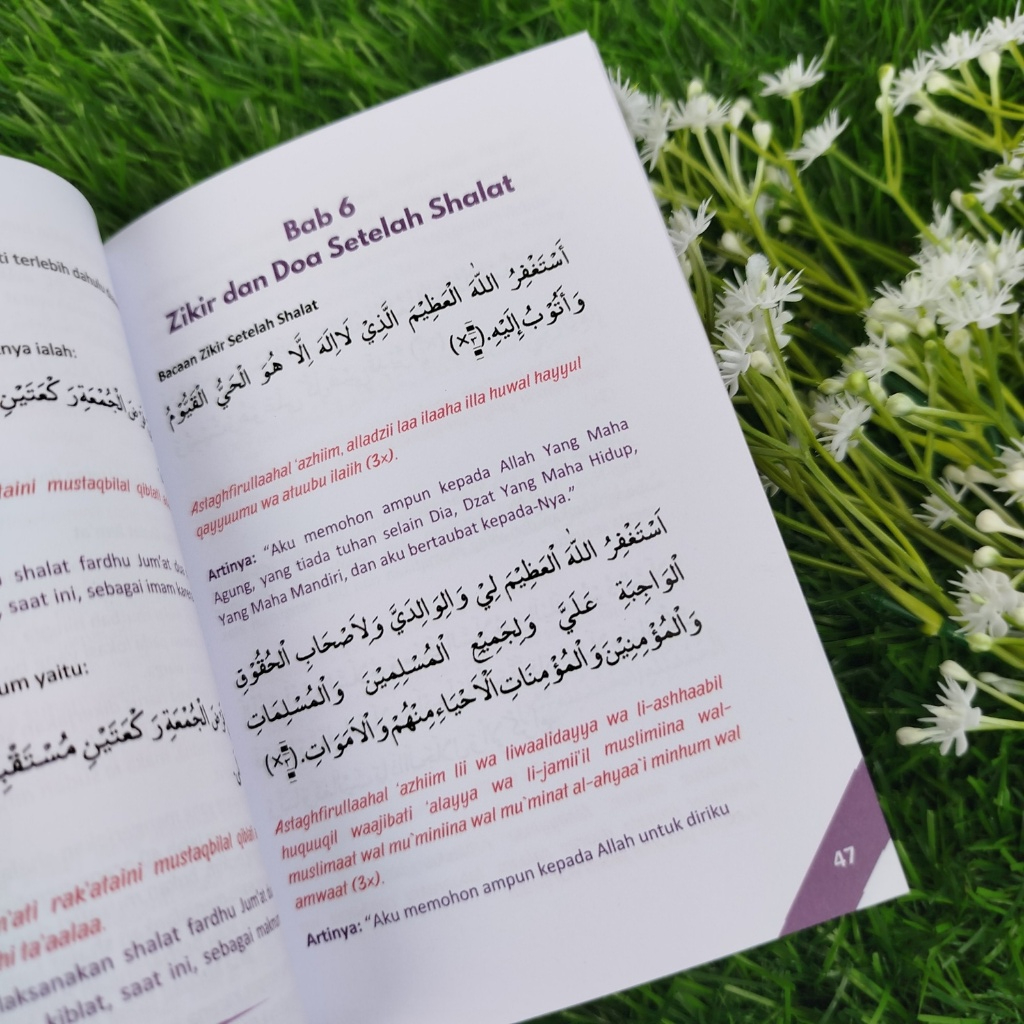 ti terlebih dahulu
nya ialah:
الْجُمُعَةِ رَكْعَتَيْنِ
taini mustaqbilal qiblati
shalat fardhu Jum'at dua
saat ini, sebagai imam karena
um yaitu:
الْجُمُعَةِ رَكْعَتَيْنِ مُسْتَقْبِلَ
m'ati rak'ataini mustaqbilal qiblati
hi ta'aalaa.
laksanakan shalat fardhu Jum'at dua
kiblat, saat ini, sebagai makmum
Bab 6
Zikir dan Doa Setelah Shalat
Bacaan Zikir Setelah Shalat
أَسْتَغْفِرُ اللّٰهَ الْعَظِيْمَ الَّذِيْ لَااِلٰهَ اِلَّا هُوَ الْحَيُّ الْقَيُّوْمُ
وَأَتُوْبُ إِلَيْهِ. (×٣)
Astaghfirullaahal 'azhiim, alladzii laa ilaaha illa huwal hayyul
qayyuumu wa atuubu ilaiih (3x).
Artinya: “Aku memohon ampun kepada Allah Yang Maha
Agung, yang tiada tuhan selain Dia, Dzat Yang Maha Hidup,
Yang Maha Mandiri, dan aku bertaubat kepada-Nya.”
اَسْتَغْفِرُ اللّٰهَ الْعَظِيْمَ لِيْ وَالِوَالِدَيَّ وَلِاَصْحَابِ الْحُقُوْقِ
الْوَاجِبَةِ عَلَيَّ وَلِجَمِيْعِ الْمُسْلِمِيْنَ وَالْمُسْلِمَاتِ
وَالْمُؤْمِنِيْنَ وَالْمُؤْمِنَاتِ الْاَحْيَاءِ مِنْهُمْ وَالْاَمَوَاتِ. (×٣)
Astaghfirullaahal 'azhiim lii wa liwaalidayya wa li-ashhaabil
huquuqil waajibati 'alayya wa li-jamii'il muslimiina wal-
muslimaat wal mu`miniina wal mu`minat al-ahyaa`i minhum wal
amwaat (3x).
Artinya: “Aku memohon ampun kepada Allah untuk diriku
47